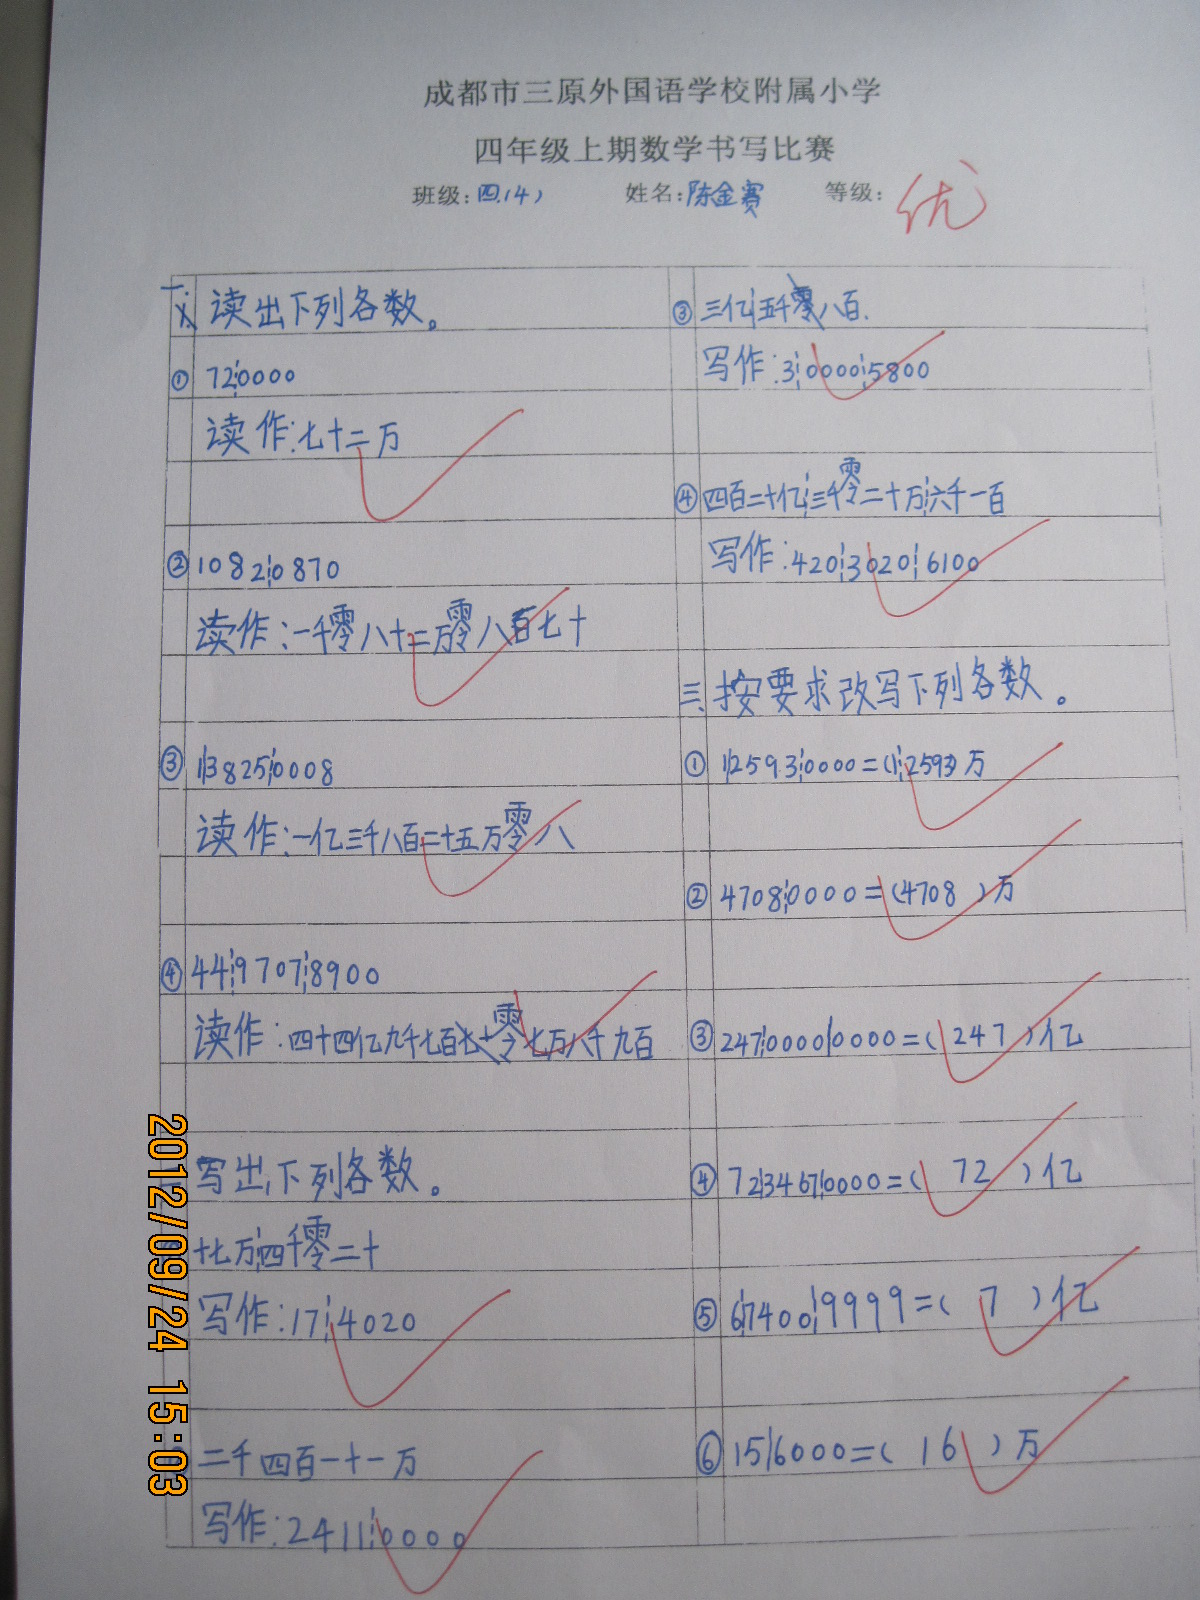 成都市三原外国语学校附属小学
四年级上期数学书写比赛
班级:四.(4) 姓名:陈金赛 等级: 优
一、读出下列各数。
① 72¦0000
读作:七十二万
② 1082¦0870
读作:一千零八十二万零八百七十
③ 1¦3825¦0008
读作:一亿三千八百二十五万零八
④ 44¦9707¦8900
读作:四十四亿九千七百零七万八千九百
写出下列各数。
十七万¦四千零二十
写作:17¦4020
二千四百一十一万
写作:2411¦0000
③ 三亿¦五千八百.
写作:3¦0000¦5800
④ 四百二十亿¦三千零二十万¦六千一百
写作:420¦3020¦6100
三、按要求改写下列各数。
① 1¦2593¦0000=(1¦2593)万
② 4708¦0000=(4708)万
③ 247¦0000¦0000=(247)亿
④ 72¦3467¦0000=(72)亿
⑤ 6¦7400¦9999=(7)亿
⑥ 15¦6000=(16)万
2012/09/24 15:03